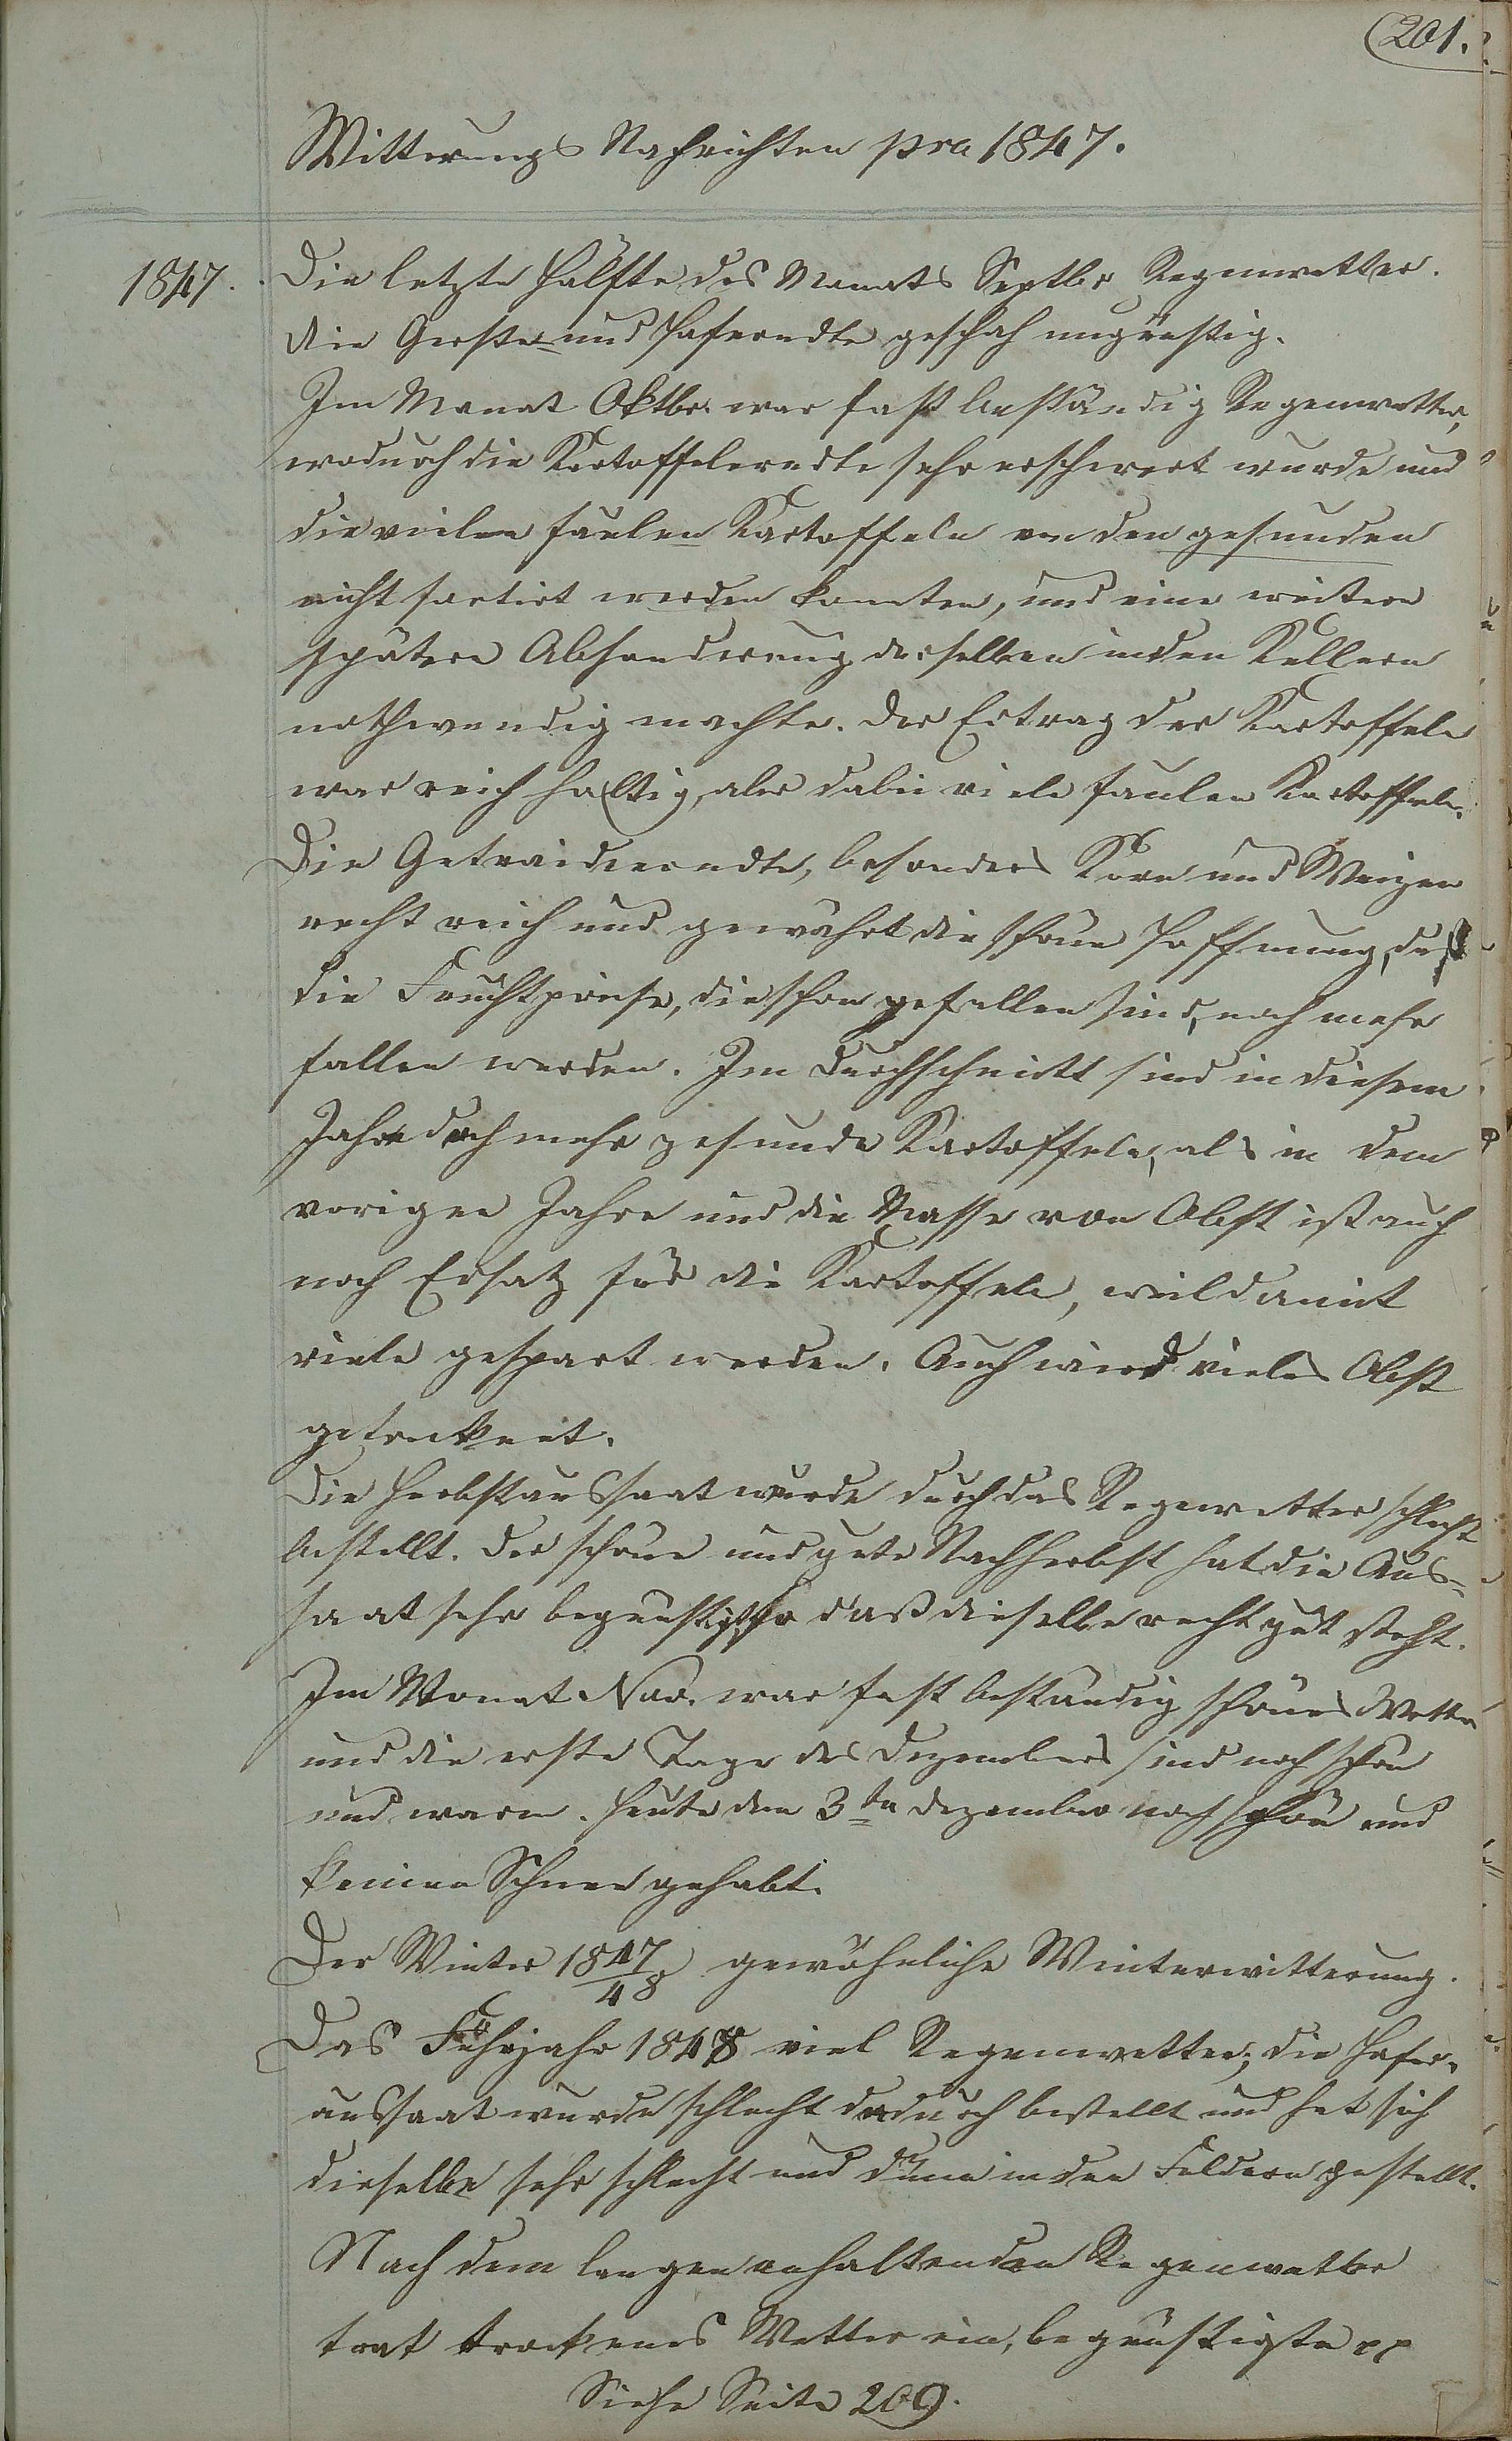 201.
Witterungs Nachrichten pro 1847.
1847.
Die letzte Hälfte des Monats Septbr Regenwetter.
die Gerste- und Hafererndte geschah ungünstig.
Im Monat Oktbr. war fast beständig Regenwetter,
wodurch die Kartoffelerndte sehr erschwert wurde und
die vielen faulen Kartoffeln von den gesunden
nicht sortirt werden konnten, und eine weitere
spätere Absonderung derselben in den Kellern
nothwendig machte. Der Ertrag der Kartoffeln
war reichhaltig, aber dabei viele faulen Kartoffeln.
Die Getraideerndte, besonders Korn und Weizen
recht reich und gewährt die schöne Hoffnung, daß
die Fruchtpreise, die schon gefallen sind, noch mehr
fallen werden. Im Durchschnitt sind in diesem
Jahre doch mehr gesunde Kartoffeln, als in dem
vorigen Jahre und die Masse von Obst ist auch
noch Ersatz für die Kartoffeln, weil damit
viele gespart werden. Auch wird vieles Obst
getrocknet.
Die Herbstaussaat wurde durch das Regenwetter schlecht
bestellt. Der schöne und gute Nachherbst hat die Aus-
saat sehr begünstigt, so daß dieselbe recht gut steht.
Im Monat Nov. war fast beständig schönes Wetter
und die erste Tage des Dezembers sind noch schön
und warm. Heute den 3ten Dezember noch schön und
keinen Schnee gehabt.
Der Winter 1847/48 gewöhnliche Winterwitterung.
Das Frühjahr 1848 viel Regenwetter; die Hafer-
aussaat wurde schlecht dadurch bestellt und hat sich
dieselbe sehr schlecht und dünn in den Feldern gestellt.
Nach dem langen anhaltenden Regenwetter
trat trockenes Wetter ein, begünstigte pp
Siehe Seite 209.